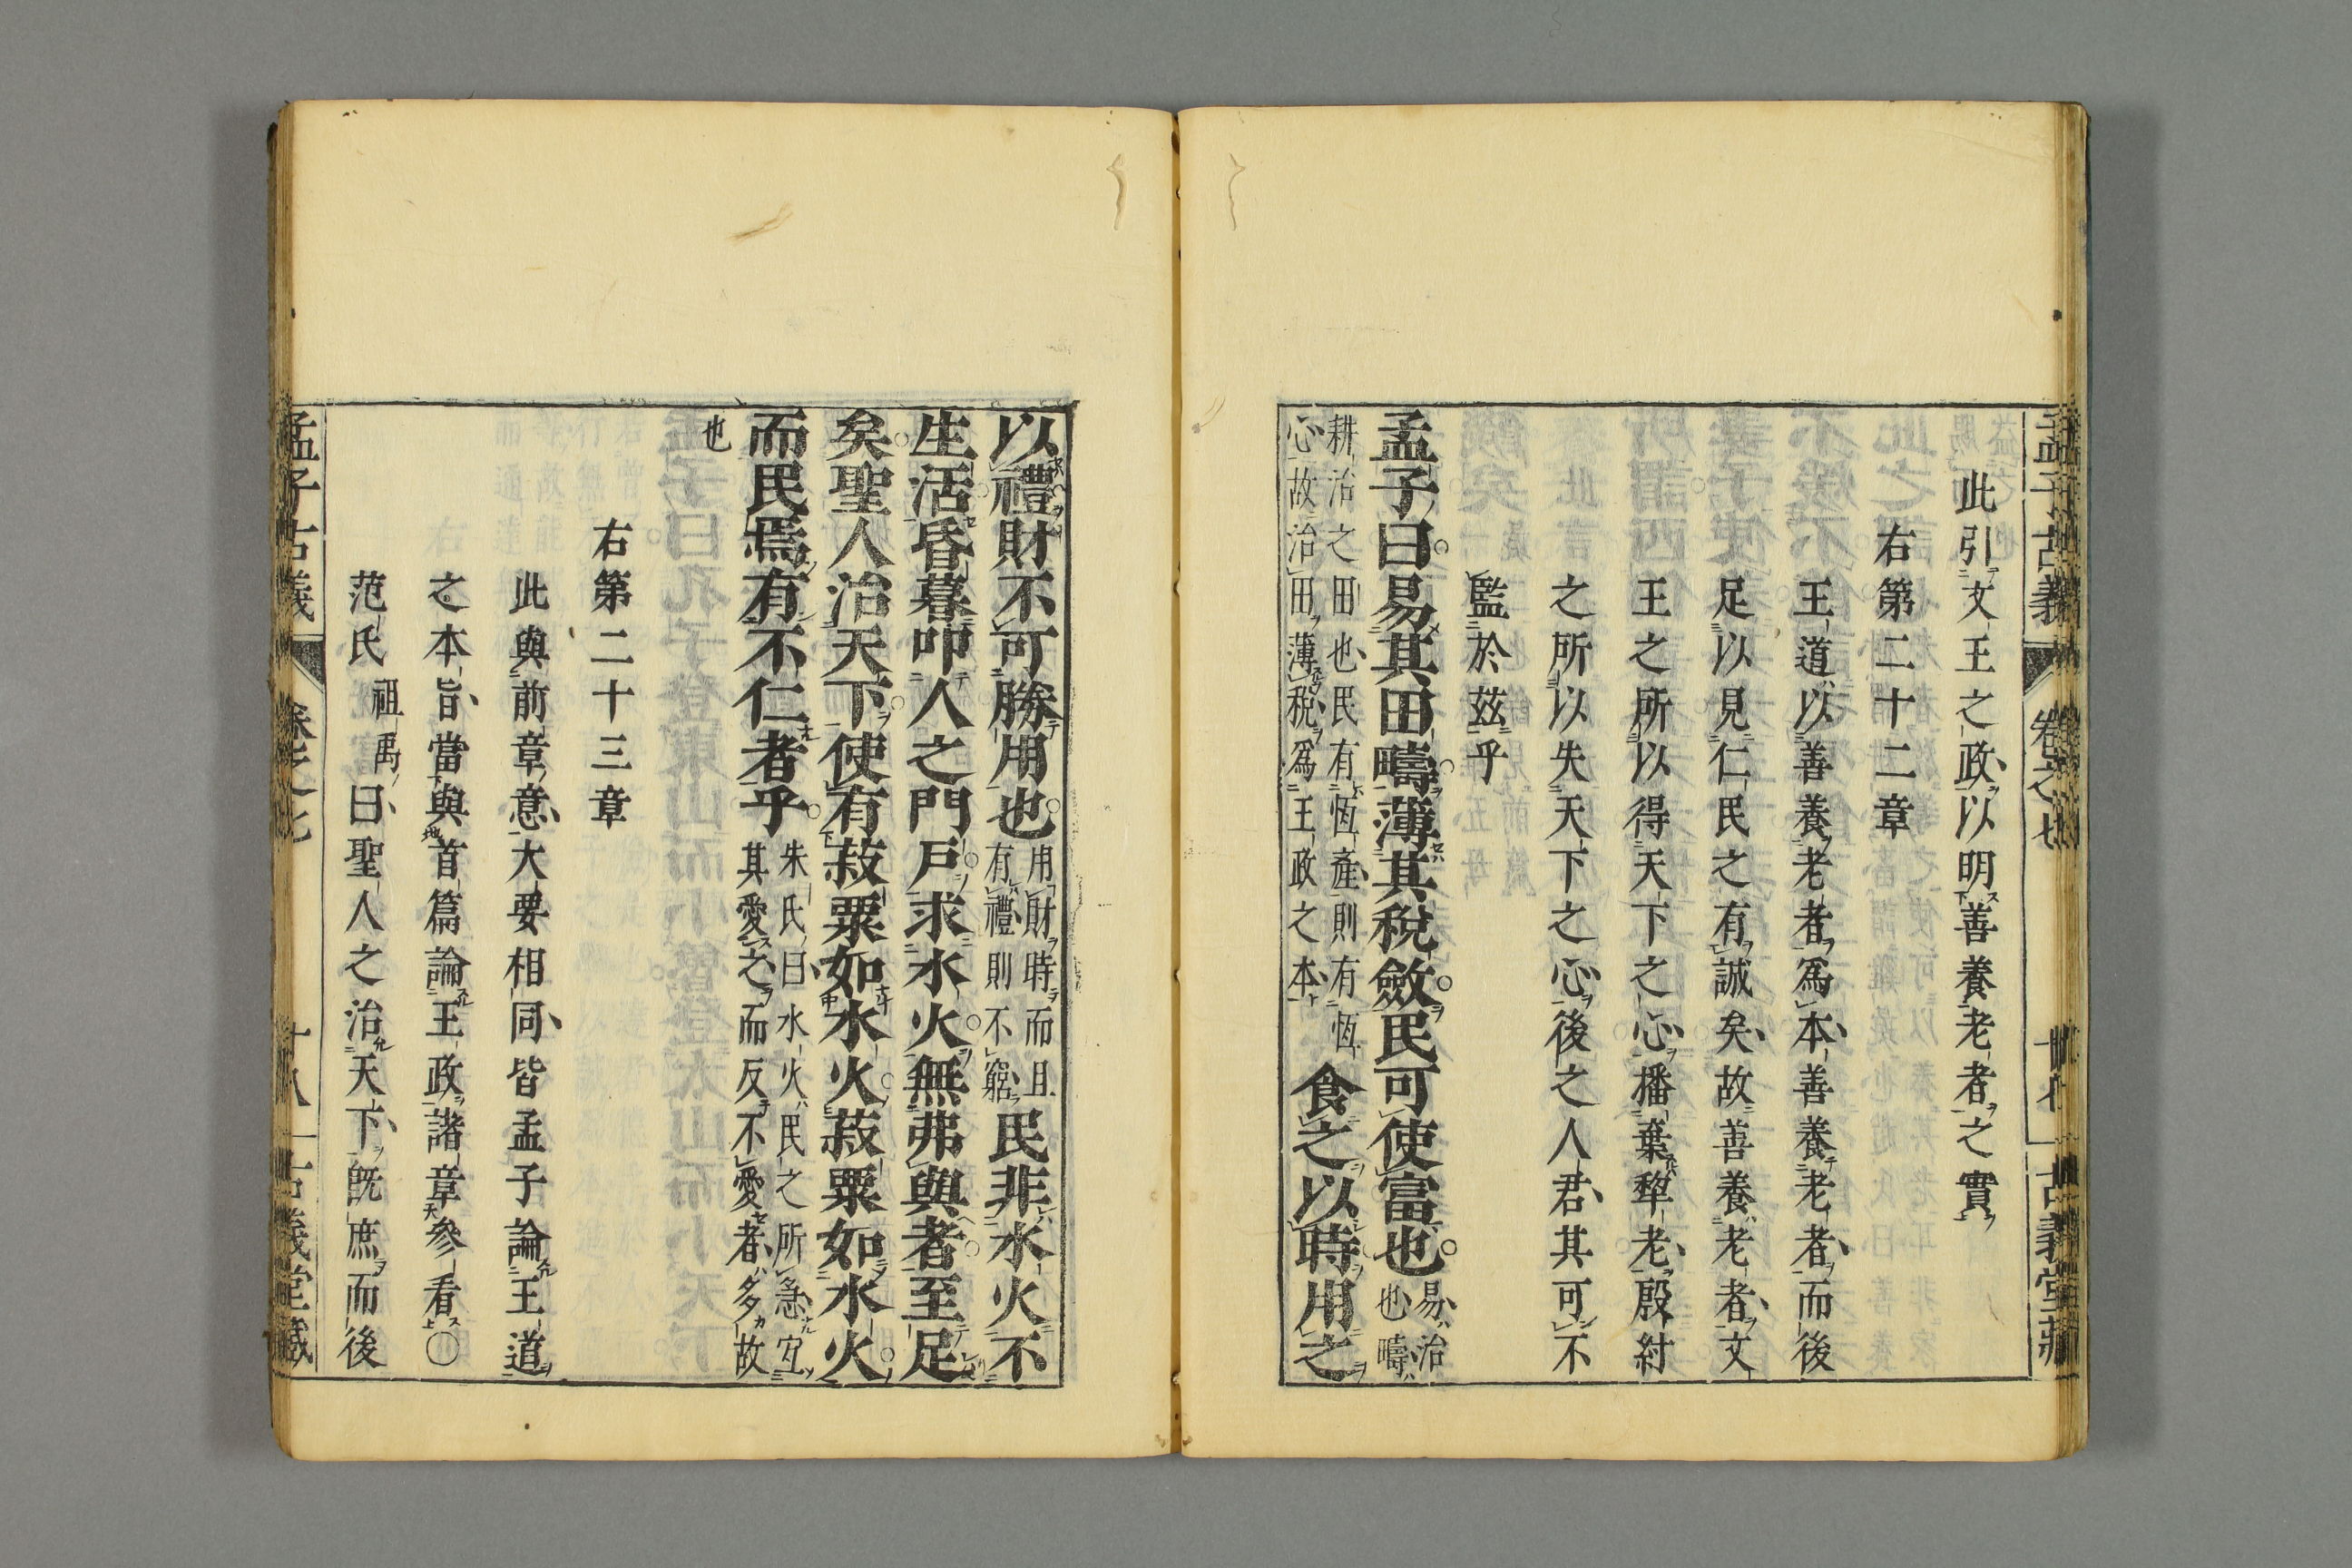 孟子古義
卷之七
古義堂藏
此引文王之政以明善養老者之實
右第二十二章
王道以善養老者爲本善養老者而後
足以見仁民之有誠矣故善養老者文
王之所以得天下之心播棄犂老殷紂
之所以失天下之心後之人君其可不
監於茲乎
孟子曰易其田疇薄其稅斂民可使富也
易治
也疇
耕治之田也民有恆產則有恆
心故治田薄稅爲王政之本
食之以時用之
以禮財不可勝用也
用財時而且
有禮則不窮
民非水火不
生活昏暮叩人之門戶求水火無弗與者至足
矣聖人治天下使有菽粟如水火菽粟如水火
而民焉有不仁者乎
朱氏曰水火民之所急宜
其愛之而反不愛者多故
也
右第二十三章
此與前章意大要相同皆孟子論王道
之本旨當與首篇論王政諸章參看○
范氏祖禹曰聖人之治天下旣庶而後
孟子古義
卷之七
十八
古義堂藏